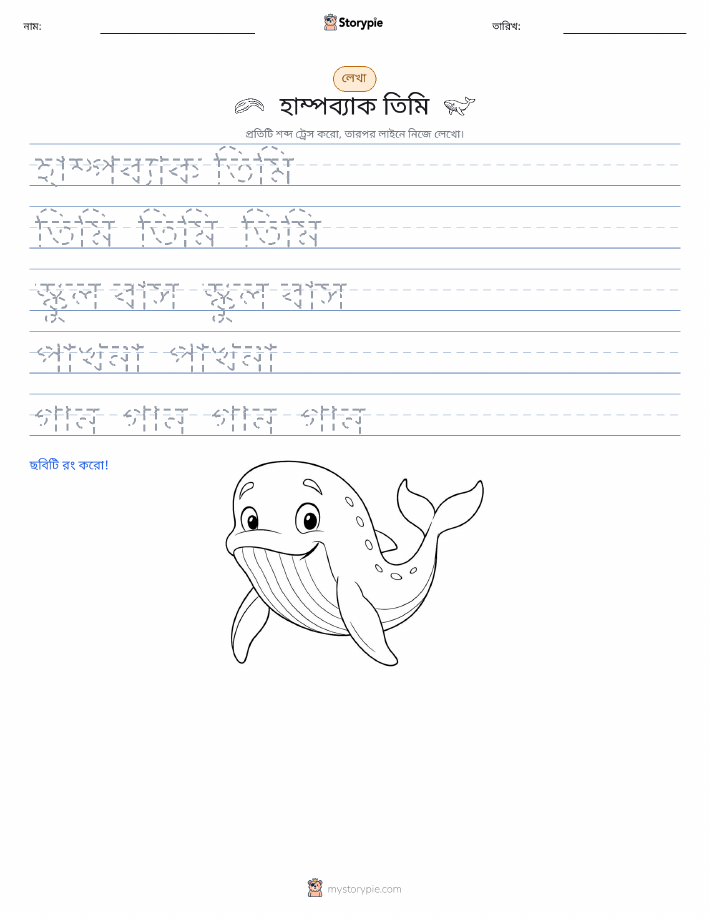 নাম:
Storypie
তারিখ:
লেখা
হাম্পব্যাক তিমি
প্রতিটি শব্দ ট্রেস করো, তারপর লাইনে নিজে লেখো।
হাম্পব্যাক তিমি
তিমি তিমি তিমি
স্কুল বাস স্কুল বাস
পাখনা পাখনা
গান গান গান গান
ছবিটি রং করো!
mystorypie.com